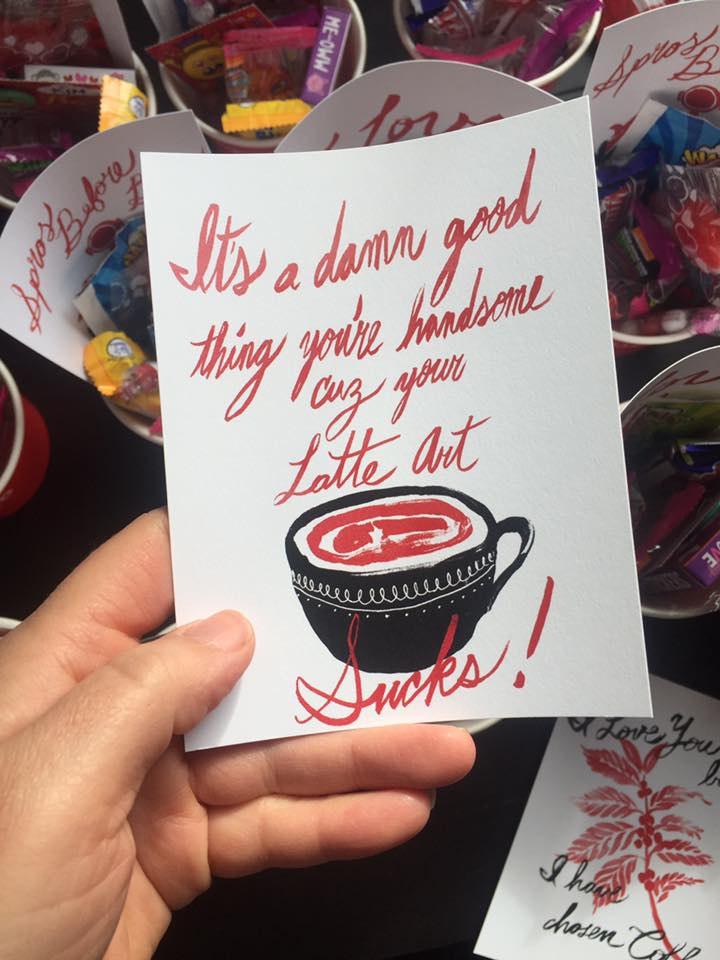 It's a damn good
thing you're handsome
cuz your
Latte Art
Sucks!
Spros
Before
Love
Spros
B
ME-OWW
I Love You
b
I have
chosen Cof